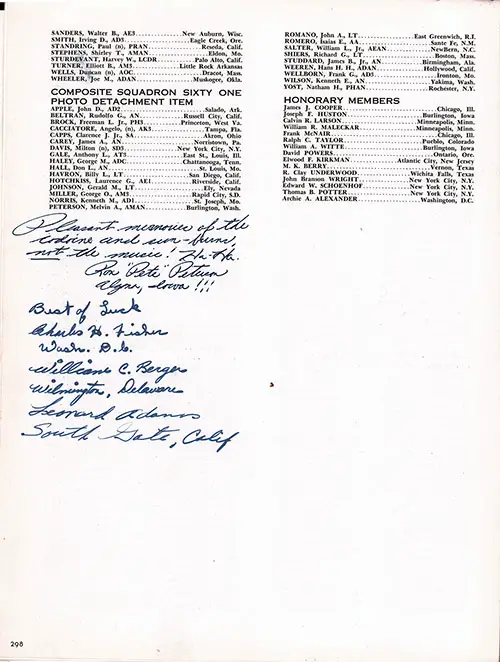 SANDERS, Walter B., AE3..........New Auburn, Wisc.
SMITH, Irving D., AD3..........Eagle Creek, Ore.
STANDRING, Paul (n), PRAN..........Reseda, Calif.
STEPHENS, Shirley T., AMAN..........Eldon, Mo.
STURDEVANT, Harvey W., LCDR..........Palo Alto, Calif.
TURNER, Elliott B., AM3..........Little Rock Arkansas
WELLS, Duncan (n), AOC..........Dracot, Mass.
WHEELER, Joe M., ADAN..........Muskogee, Okla.
COMPOSITE SQUADRON SIXTY ONE
PHOTO DETACHMENT ITEM
APPLE, John D., AD2..........Salado, Ark.
BELTRAN, Rudolfo G., AN..........Russell City, Calif.
BROCK, Freeman L. Jr., PH3..........Princeton, West Va.
CACCIATORE, Angelo (n), AK3..........Tampa, Fla.
CAPPS, Clarence J. Jr., SA..........Akron, Ohio
CARRY, James A., AN..........Norristown, Pa.
DAVIS, Milton (n), SD3..........New York City, N.Y.
GALE, Anthony L., AT3..........East St., Louis, Ill.
HALEY, George M., ADC..........Chattanooga, Tenn.
HALL, Don L., AN..........St. Louis, Mo.
HAVRON, Billy L., LT..........San Diego, Calif.
HOTCHKISS, Laurence G., AE1..........Riverside, Calif.
JOHNSON, Gerald M., LT..........Ely, Nevada
MILLER, George O., AM3..........Rapid City, S.D.
NORRIS, Kenneth M., AD1..........St. Joseph, Mo.
PETERSON, Melvin A., AMAN..........Burlington, Wash.
Pleasant memories of the
codeine and sun-burn,
not the music! Ha-Ha.
Ron "Pete"
Algona, Iowa !!!
Best of Luck
Charles H. Fisher
Wash. D.C.
William C. Berger
Wilmington, Delaware
Leonard Adams
South Gate, Calif
ROMANO, John A., LT..........East Greenwich, R.I.
ROMERO, Isaias E., AA..........Sante Fe, N.M.
SALTER, William L., Jr., AEAN..........NewBern, N.C.
SHIERS, Richard G., LT..........Boston, Mass.
STUDDARD, James B., Jr., AN..........Birmingham, Ala.
WEEREN, Hans H. H., ADAN..........Hollywood, Calif.
WELLBORN, Frank G., AD3..........Ironton, Mo.
WILSON, Kenneth E., AN..........Yakima, Wash.
YOST, Nathan H., PHAN..........Rochester, N.Y.
HONORARY MEMBERS
James J. COOPER..........Chicago, Ill.
Joseph F. HUSTON..........Burlington, Iowa
Calvin R. LARSON..........Minneapolis, Minn.
William R. MALECKAR..........Minneapolis, Minn.
Frank McNAIR..........Chicago, Ill.
Ralph C. TAYLOR..........Pueblo, Colorado
William A. WITTE..........Burlington, Iowa
David POWERS..........Ontario, Ore.
Elwood F. KIRKMAN..........Atlantic City, New Jersey
M. K. BERRY..........Vernon, Texas
R. Clay UNDERWOOD..........Wichita Falls, Texas
John Branson WRIGHT..........New York City, N.Y.
Edward W. SCHOENHOF..........New York City, N.Y.
Thomas B. POTTER..........New York City, N.Y.
Archie A. ALEXANDER..........Washington, D.C.
298